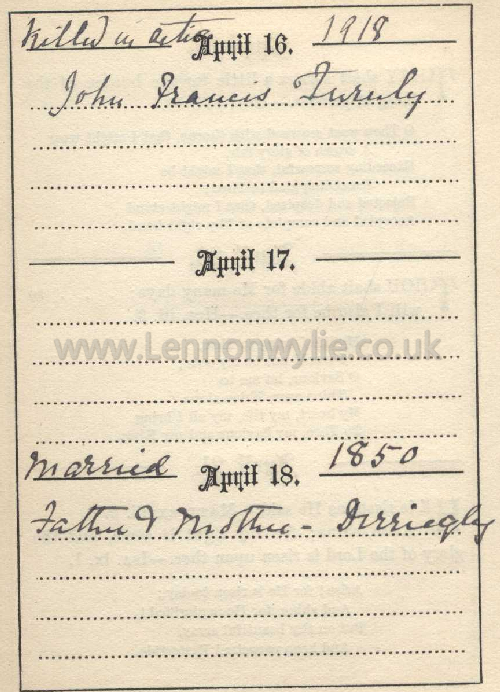 Killed in action April 16. 1918
John Francis Turuly
April 17.
www.Lennonwylie.co.uk
Married April 18. 1850
Father & Mother - Derriaghy